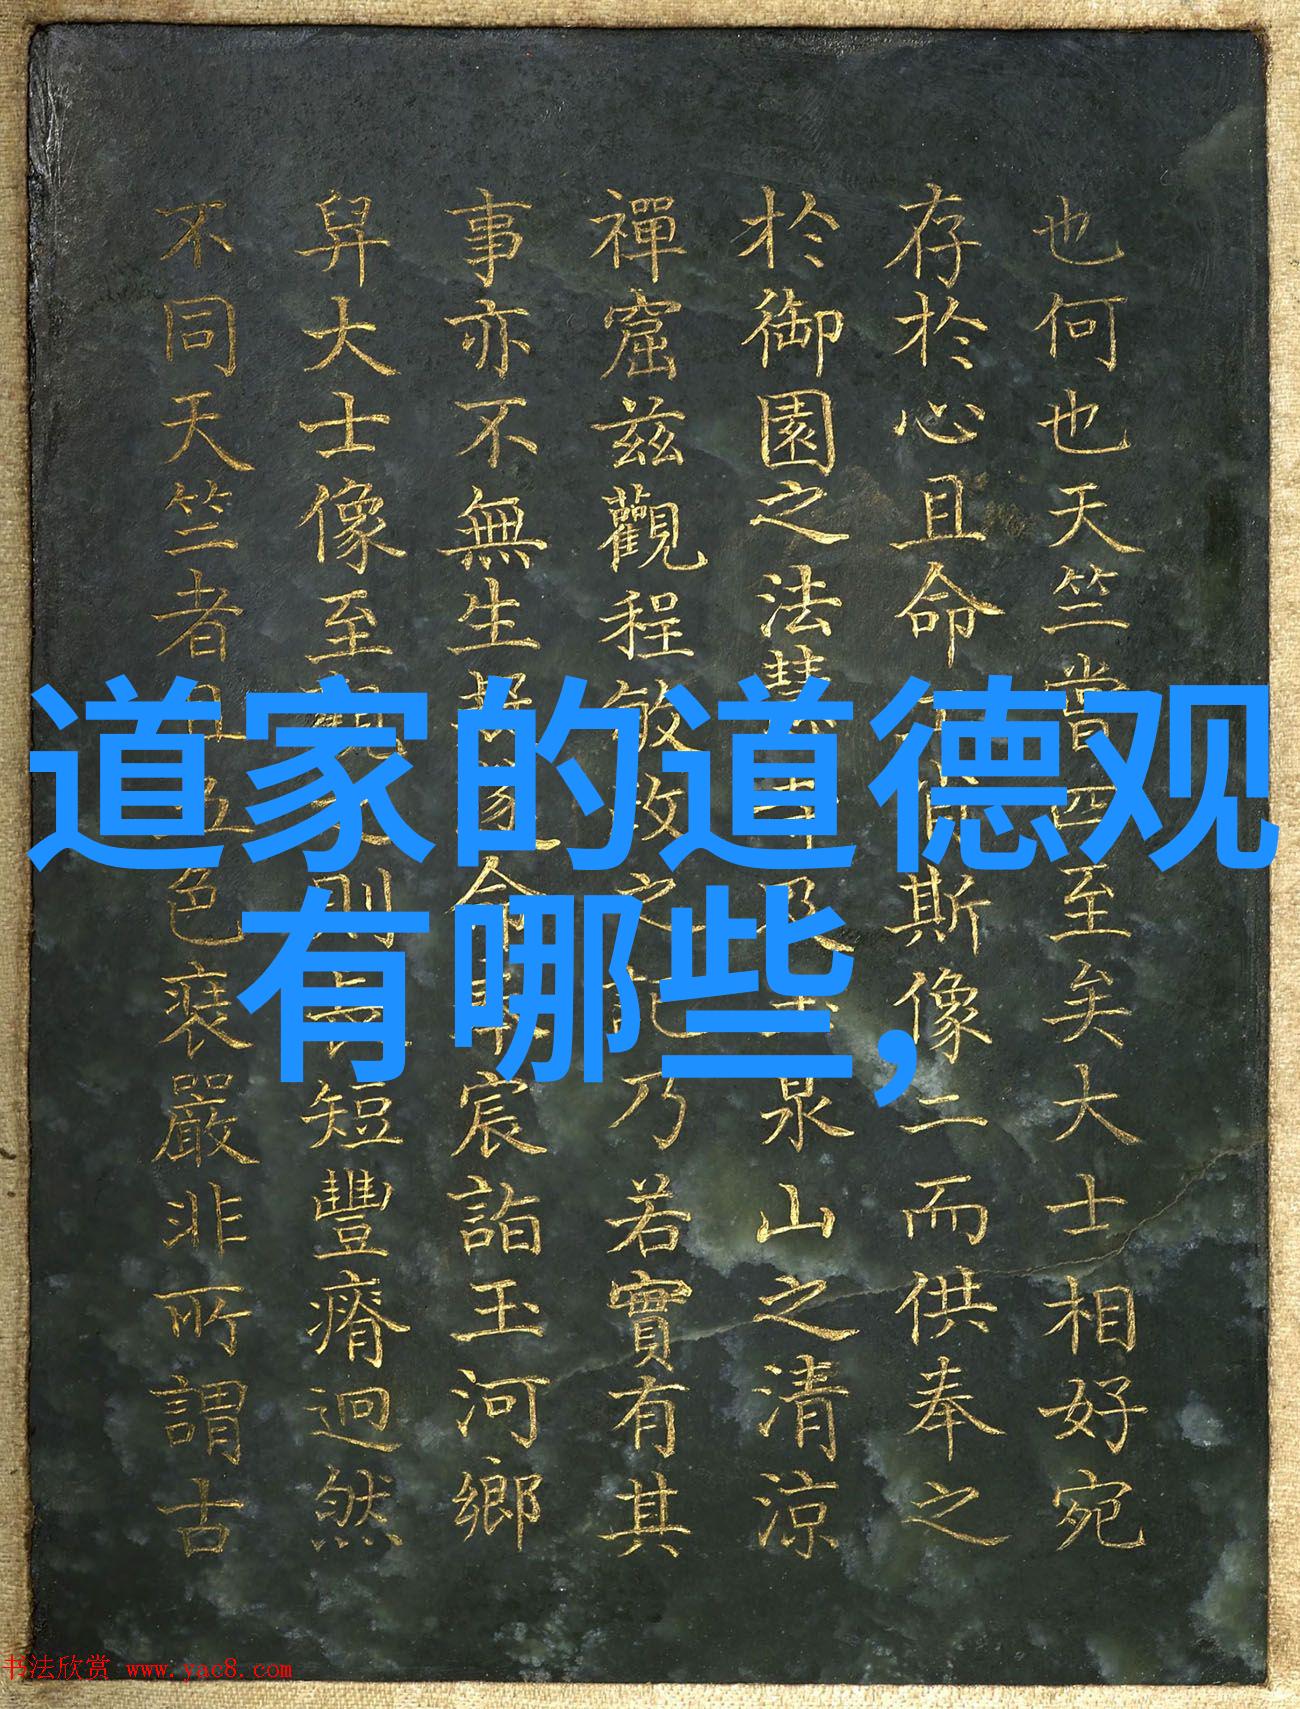 也何也天竺當四至矣大士相好宛
存於心且命斯像二而供奉之
於御園之法慧寺及泉山之清涼
禪窟茲觀程敏政之記乃若實有其
事亦不無生命宸詣玉河鄉
舁大士像至則短豐瘠迥然
不同天竺者色裝嚴非所謂古
道家的道德观
有哪些,
书法欣赏 www.yac8.com